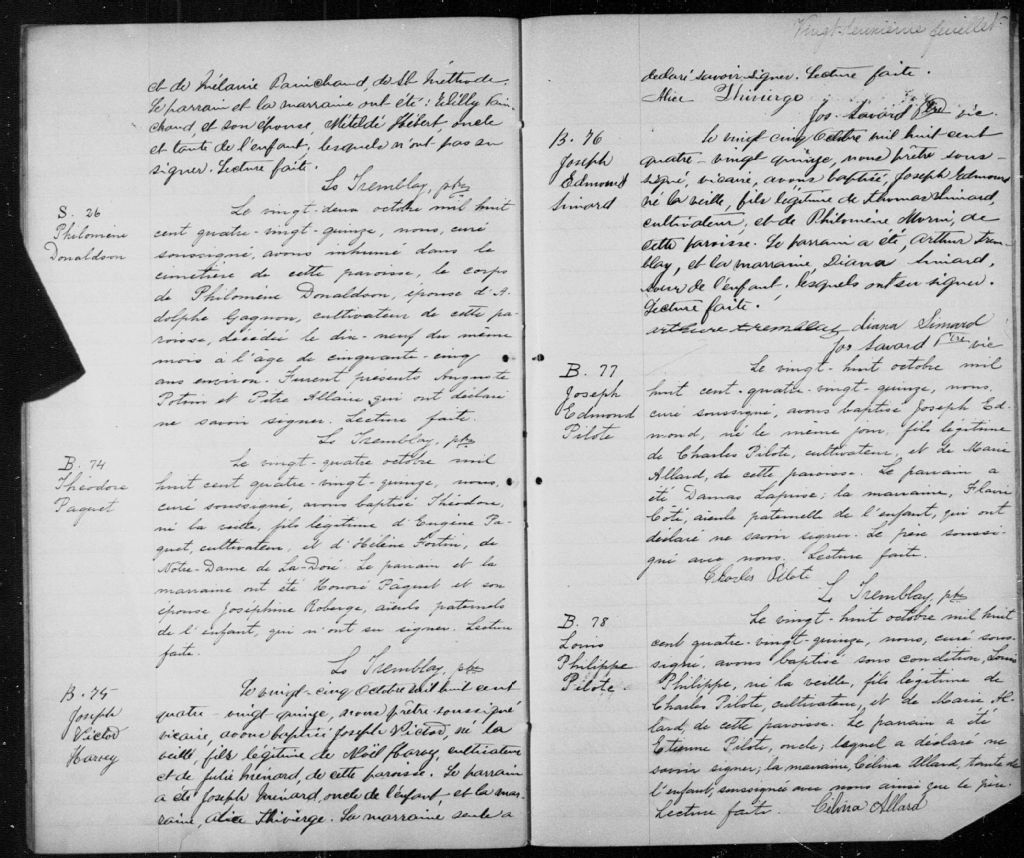 et de Mélanie Painchaud, de St. Méthode.
Le parrain et la marraine ont été: Willy Pain-
chaud, et son épouse, Métildé Hébert, oncle
et tante de l'enfant, lesquels n'ont pas su
signer. Lecture faite.
Ls Tremblay, ptre
S. 26
Philomène
Donaldson
Le vingt-deux octobre mil huit
cent quatre-vingt-quinze, nous, curé
soussigné, avons inhumé dans le
cimetière de cette paroisse, le corps
de Philomène Donaldson, épouse d'A-
dolphe Gagnon, cultivateur de cette pa-
roisse, décédée le dix-neuf du même
mois à l'age de cinquante-cinq
ans environ. Furent présents Auguste
Potvin et Pitre Allaire qui ont déclaré
ne savoir signer. Lecture faite.
Ls Tremblay, ptre
B. 74
Théodore
Paquet
Le vingt-quatre octobre mil
huit cent quatre-vingt-quinze, nous,
curé soussigné, avons baptisé Théodore,
né la veille, fils légitime d'Eugène Pa-
quet, cultivateur, et d'Hélène Fortin, de
Notre-Dame de La-Doré. Le parrain et la
marraine ont été Honoré Paquet et son
épouse Joséphine Roberge, aieuls paternels
de l'enfant, qui n'ont su signer. Lecture
faite.
Ls Tremblay, ptre
B. 75
Joseph
Victod
Harvey
Le vingt-cinq Octobre mil huit cent
quatre-vingt quinze, nous prêtre soussigné
vicaire, avons baptisé Joseph Victod, né la
veille, fils légitime de Noël Harvey, cultivateur
et de Julie Ménard, de cette paroisse. Le parrain
a été Joseph Ménard, oncle de l'enfant, et la mar-
raine, Alice Thivierge. La marraine seule a
Vingt-deuxième feuillet
declaré savoir signer. Lecture faite.
Alice Thivierge
Jos. Savard Ptre vic.
B. 76
Joseph
Edmond
Simard
Le vingt cinq Octobre mil huit cent
quatre-vingt quinze, nous prêtre sous-
signé, vicaire, avons baptisé, Joseph Edmond
né la veille, fils légitime de Thomas Simard,
cultivateur, et de Philomène Morin, de
cette paroisse. Le parrain a été, Arthur Trem-
blay, et la marraine, Diana Simard,
sœur de l'enfant. lesquels ont su signer.
Lecture faite.
arthure tremblay diana Simard
Jos Savard Ptre vic
B. 77
Joseph
Edmond
Pilote
Le vingt-huit octobre mil
huit cent-quatre-vingt-quinze, nous,
curé soussigné, avons baptisé Joseph Ed-
mond, né le même jour, fils légitime
de Charles Pilote, cultivateur, et de Marie
Allard, de cette paroisse. Le parrain a
été Damas Laprise; la marraine, Flavie
Côté, aieule paternelle de l'enfant, qui ont
déclaré ne savoir signer. Le père soussi-
gné avec nous. Lecture faite.
Charles Pilote
Ls Tremblay, ptre
B. 78
Louis
Philippe
Pilote.
Le vingt-huit octobre mil huit
cent quatre-vingt-quinze, nous, curé sous-
signé, avons baptisé sous condition, Louis
Philippe, né la veille, fils légitime de
Charles Pilote, cultivateur, et de Marie Al-
lard, de cette paroisse. Le parrain a été
Etienne Pilote, oncle; lequel a déclaré ne
savoir signer; la marraine, Célina Allard, tante de
l'enfant, soussignée avec nous ainsi que le père.
Lecture faite. Célina Allard